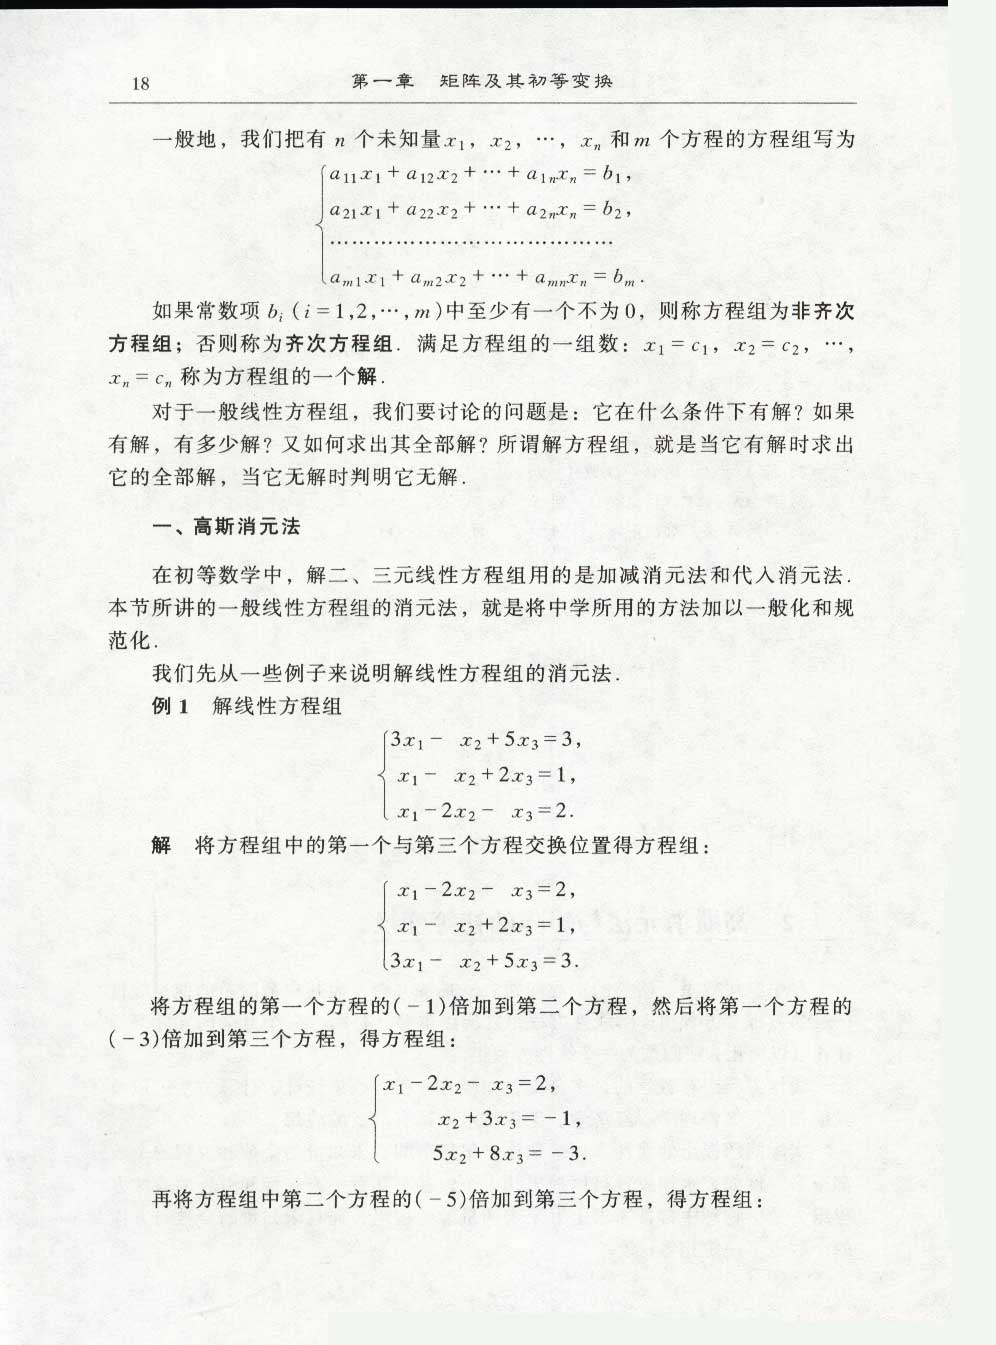 18 第一章 矩阵及其初等变换
一般地，我们把有 n 个未知量x₁，x₂，…，xₙ 和m 个方程的方程组写为
a₁₁x₁ + a₁₂x₂ + … + a₁ₙxₙ = b₁，
a₂₁x₁ + a₂₂x₂ + … + a₂ₙxₙ = b₂，
………………………………
aₘ₁x₁ + aₘ₂x₂ + … + aₘₙxₙ = bₘ.
如果常数项 bᵢ (i = 1,2,…,m)中至少有一个不为 0，则称方程组为非齐次
方程组；否则称为齐次方程组. 满足方程组的一组数：x₁ = c₁，x₂ = c₂，…，
xₙ = cₙ 称为方程组的一个解.
对于一般线性方程组，我们要讨论的问题是：它在什么条件下有解？如果
有解，有多少解？又如何求出其全部解？所谓解方程组，就是当它有解时求出
它的全部解，当它无解时判明它无解.
一、高斯消元法
在初等数学中，解二、三元线性方程组用的是加减消元法和代入消元法.
本节所讲的一般线性方程组的消元法，就是将中学所用的方法加以一般化和规
范化.
我们先从一些例子来说明解线性方程组的消元法.
例 1 解线性方程组
3x₁ - x₂ + 5x₃ = 3，
x₁ - x₂ + 2x₃ = 1，
x₁ - 2x₂ - x₃ = 2.
解 将方程组中的第一个与第三个方程交换位置得方程组：
x₁ - 2x₂ - x₃ = 2，
x₁ - x₂ + 2x₃ = 1，
3x₁ - x₂ + 5x₃ = 3.
将方程组的第一个方程的( - 1)倍加到第二个方程，然后将第一个方程的
( - 3)倍加到第三个方程，得方程组：
x₁ - 2x₂ - x₃ = 2，
x₂ + 3x₃ = - 1，
5x₂ + 8x₃ = - 3.
再将方程组中第二个方程的( - 5)倍加到第三个方程，得方程组：